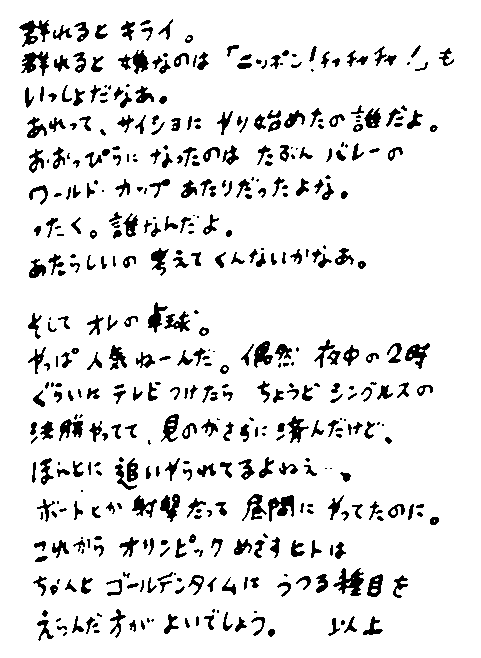 群れると キライ。
群れると 嫌なのは 「ニッポン！チャチャチャ！」も
いっしょだなあ。
あれって、サイショに やり始めたの誰だよ。
おおっぴらに なったのは たぶん バレーの
ワールド・カップ あたりだったよな。
ったく。誰なんだよ。
あたらしいの 考えて くんないかなあ。
そして オレの卓球。
やっぱ 人気ねーんだ。偶然 夜中の2時
ぐらいに テレビつけたら ちょうど シングルスの
決勝やってて、見のがさずに 済んだけど、
ほんとに 追いやられてるよねえ…。
ボートとか 射撃だって 昼間に やってたのに。
これから オリンピック めざすヒトは
ちゃんと ゴールデンタイムに うつる種目を
えらんだ方が よいでしょう。 以上